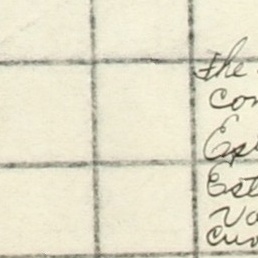 The
con
Espi
Est
Va
cuo